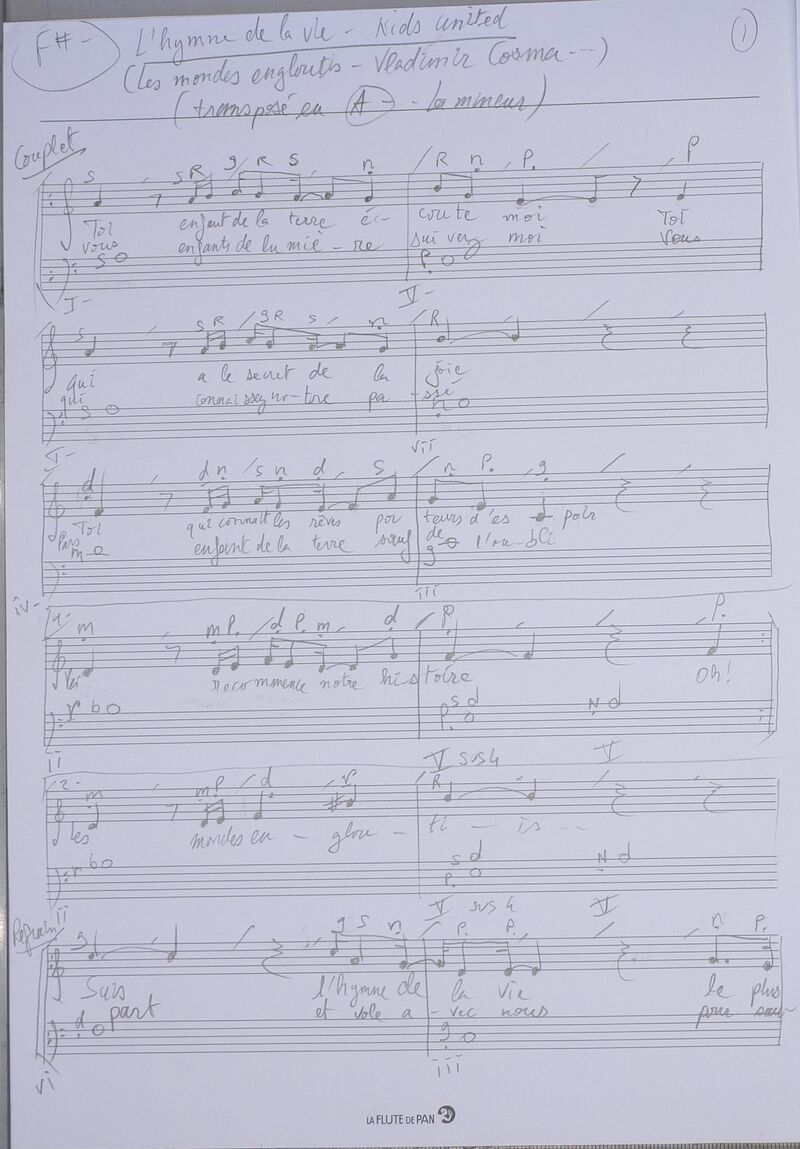 F#- L'hymne de la vie - Kids United 1
(les mondes engloutis - Vladimir Cosma ---)
(transposé en A- - La mineur)
Couplet
S S R g R S n R n P. P
Toi enfant de la terre é- coute moi Toi
vous enfants de lu miè - re sui vez moi Vous
S P.
I- V-
S S R g R S n R
qui a le secret de la joie
qui connaissez no - tre pa - ssé
S n
I- vii
d d n S n d S n P. g
Toi qui connaît les rêves por teurs d'es poir
Pars enfant de la terre sauf de l'ou-bli
m g
iv- iii
1-
m m P. d P. m d P P.
recommence notre histoire Oh!
r b P. S d N d
II V sus4 V
2-
m m P d r R
les mondes en - glou - ti - is --
r b P. S d N d
II V sus4 V
Refrain
g g S n P. P. n P.
Suis l'hymne de la vie le plus
part et vole a - vec nous pour sau-
d g
vi iii
LA FLUTE DE PAN